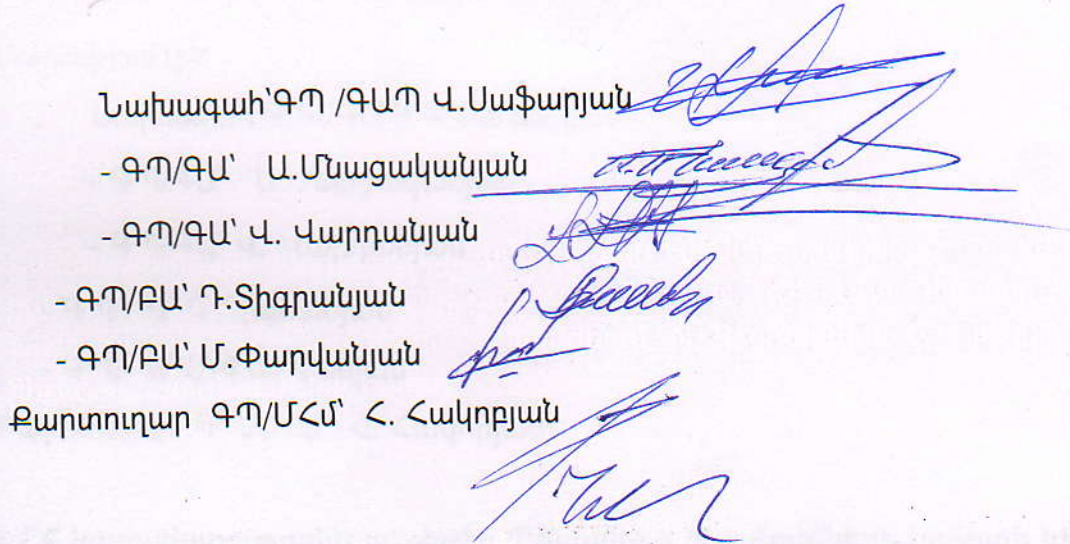 Նախագահ՝ԳՊ /ԳԱՊ Վ.Սաֆարյան
- ԳՊ/ԳԱ՝ Ա.Մնացականյան
- ԳՊ/ԳԱ՝ Վ. Վարդանյան
- ԳՊ/ԲԱ՝ Դ.Տիգրանյան
- ԳՊ/ԲԱ՝ Մ.Փարվանյան
Քարտուղար ԳՊ/ՄՀմ՝ Հ. Հակոբյան